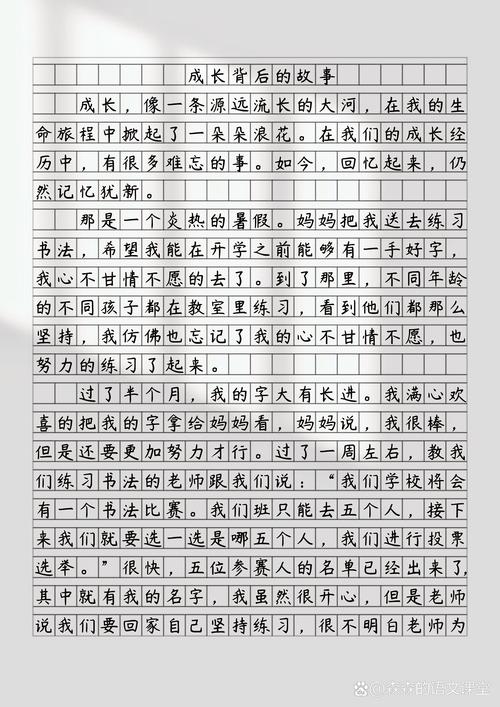 成长背后的故事
成长，像一条源远流长的大河，在我的生
命旅程中掀起了一朵朵浪花。在我们的成长经
历中，有很多难忘的事。如今，回忆起来，仍
然记忆犹新。
那是一个炎热的暑假。妈妈把我送去练习
书法，希望我能在开学之前能够有一手好字，
我心不甘情不愿的去了。到了那里，不同年龄
的不同孩子都在教室里练习，看到他们都那么
坚持，我仿佛也忘记了我的心不甘情不愿，也
努力的练习了起来。
过了半个月，我的字大有长进。我满心欢
喜的把我的字拿给妈妈看，妈妈说，我很棒，
但是还要更加努力才行。过了一周左右，教我
们练习书法的老师跟我们说：“我们学校将会
有一个书法比赛。我们班只能去五个人，接下
来我们就要选一选是哪五个人，我们进行投票
选举。”很快，五位参赛人的名单已经出来了，
其中就有我的名字，我虽然很开心，但是老师
说我们要回家自己坚持练习，很不明白老师为
@森森的语文课堂